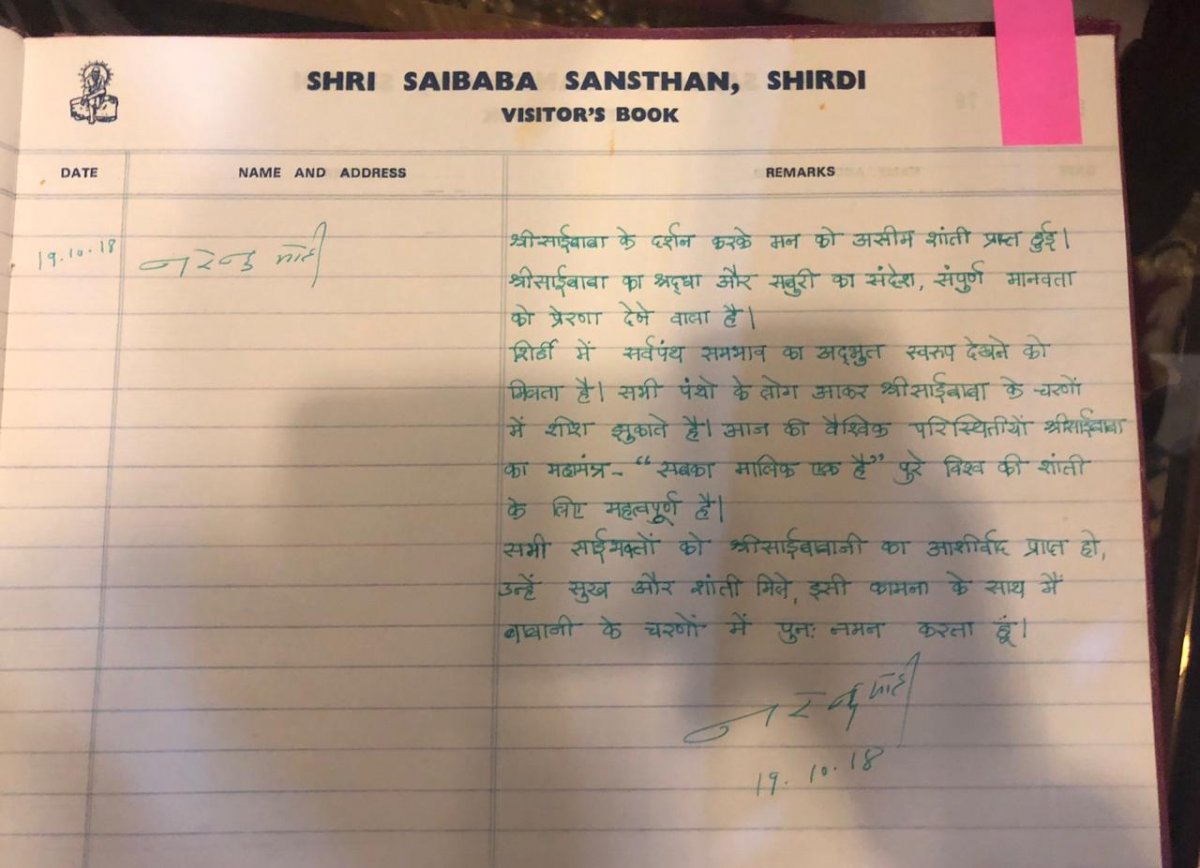 SHRI SAIBABA SANSTHAN, SHIRDI
VISITOR'S BOOK
DATE NAME AND ADDRESS REMARKS
19.10.18 नरेन्द्र मोदी
श्री साईबाबा के दर्शन करके मन को असीम शांती प्राप्त हुई।
श्री साईबाबा का श्रद्धा और सबुरी का संदेश, संपुर्ण मानवता
को प्रेरणा देने वाला है।
शिर्डी में सर्वपंथ समभाव का अद्भुत स्वरुप देखने को
मिलता है। सभी पंथो के लोग आकर श्री साईबाबा के चरणों
में शीश झुकाते है। आज की वैश्विक परिस्थितीयों श्री साईबाबा
का महामंत्र - “सबका मालिक एक है” पुरे विश्व की शांती
के लिए महत्वपूर्ण है।
सभी साईभक्तों को श्री साईबाबाजी का आशीर्वाद प्राप्त हो,
उन्हें सुख और शांती मिले, इसी कामना के साथ मैं
बाबाजी के चरणों में पुनः नमन करता हूं।
नरेन्द्र मोदी
19.10.18